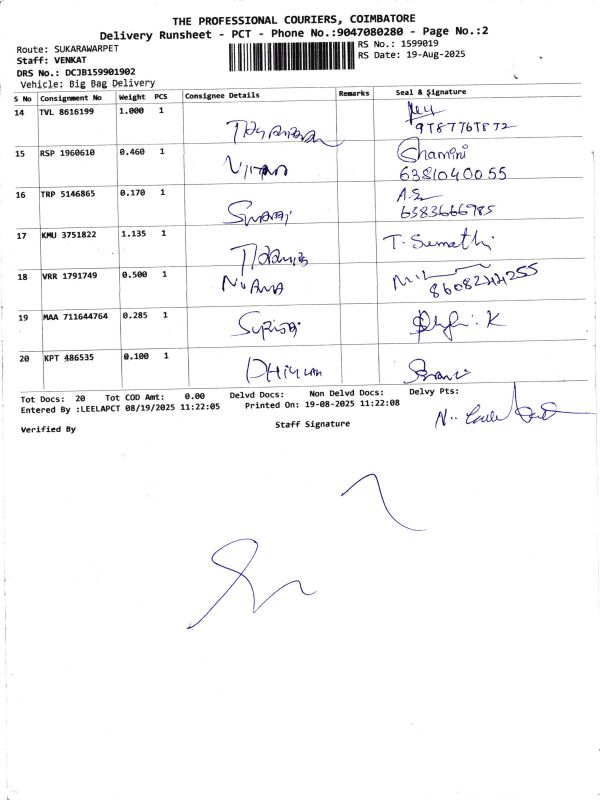 THE PROFESSIONAL COURIERS, COIMBATORE
Delivery Runsheet - PCT - Phone No.:9047080280 - Page No.:2
Route: SUKARAWARPET
RS No.: 1599019
Staff: VENKAT
RS Date: 19-Aug-2025
DRS No.: DCJB159901902
Vehicle: Big Bag Delivery
S No Consignment No Weight PCS Consignee Details Remarks Seal & Signature
14 TVL 8616199 1.000 1
15 RSP 1960610 0.460 1 Chamini
6381040055
16 TRP 5146865 0.170 1
6383666985
17 KMU 3751822 1.135 1 T. Sumathi
18 VRR 1791749 0.500 1
8608244255
19 MAA 711644764 0.285 1
20 KPT 486535 0.100 1
Tot Docs: 20 Tot COD Amt: 0.00 Delvd Docs: Non Delvd Docs: Delvy Pts:
Entered By :LEELAPCT 08/19/2025 11:22:05 Printed On: 19-08-2025 11:22:08
Verified By Staff Signature